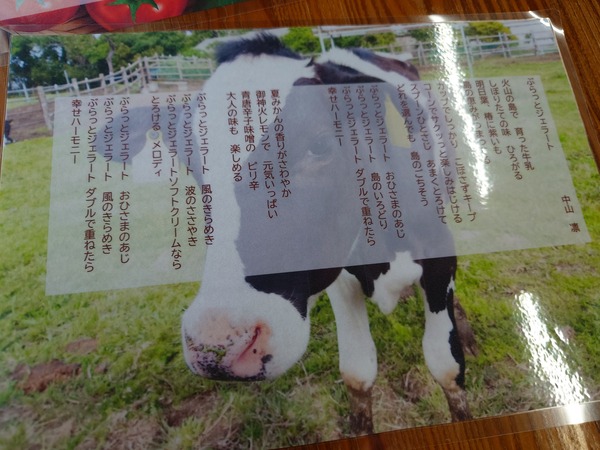 ぷらっとジェラート
中山 凛
火山の島で 育った牛乳
しぼりたての味 ひろがる
明日葉、椿に紫いも
カップでしっかり こぼさずキープ
コーンでサクッっと楽しみはじける
スプーンひとさじ あまくとろけて
どれを選んでも 島のごちそう
ぷらっとジェラート おひさまのあじ
ぷらっとジェラート 島のいろどり
ぷらっとジェラート ダブルで重ねたら
幸せハーモニー
夏みかんの香りがさわやか
御神火レモンで 元気いっぱい
青唐辛子味噌の ピリ辛
大人の味も 楽しめる
ぷらっとジェラート 風のきらめき
ぷらっとジェラート 波のささやき
ぷらっとジェラートソフトクリームなら
とろける メロディ
ぷらっとジェラート おひさまのあじ
ぷらっとジェラート 風のきらめき
ぷらっとジェラート ダブルで重ねたら
幸せハーモニー